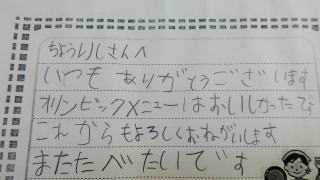 ちょうりしさんへ
いつもありがとうございます
オリンピックメニューはおいしかったです
これからもよろしくおねがいします
またたべたいです